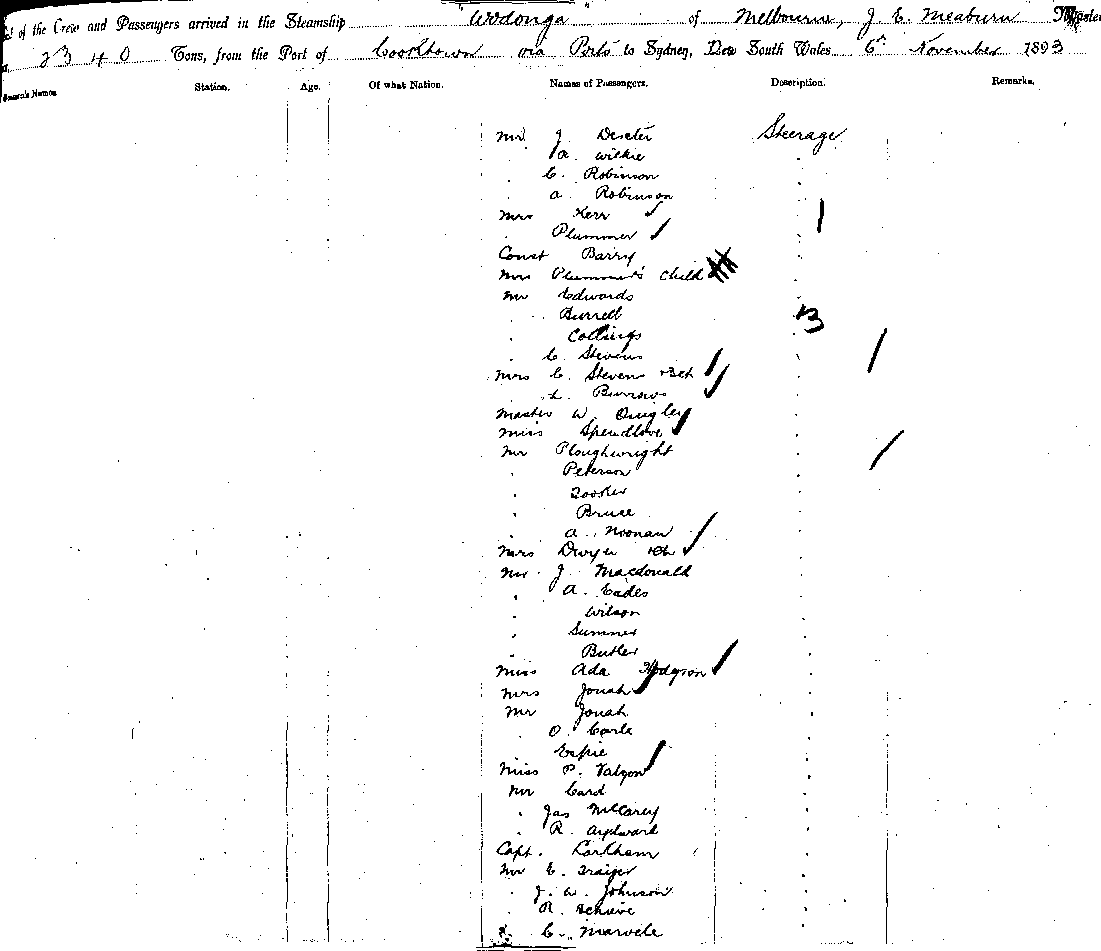 of the Crew and Passengers arrived in the Steamship "Wodonga" of Melbourne, J E Meaburn Master
2340 Tons, from the Port of Cooktown via Ports to Sydney, New South Wales 6th November 1893
Names Station. Age. Of what Nation. Names of Passengers. Description. Remarks.
Mr J Dexter Steerage
" A. Wilkie "
" C. Robinson "
" A. Robinson "
Mrs Kerr
" Plummer
Const Barry
Mrs Plummer's Child
Mr Edwards
" Burrell
" Collings
" C. Stevens
Mrs C. Stevens
" L. Burrows
Master W. Quigley
Miss Spendlove
Mr Ploughwright
" Peterson
" Tooker
" Bruce
" A. Noonan
Mrs Dwyer
Mr J. Macdonald
" A. Eades
" Wilson
" Sumner
" Butler
Miss Ada Hodgson
Mrs Jonah
Mr Jonah
" O. Carle
" Espie
Miss P. Valgon
Mr Card
" Jas McCarey
" R. Aylward
Capt. Larkham
Mr C. Traiger
" J. W. Johnson
" R.
" C. Marvele